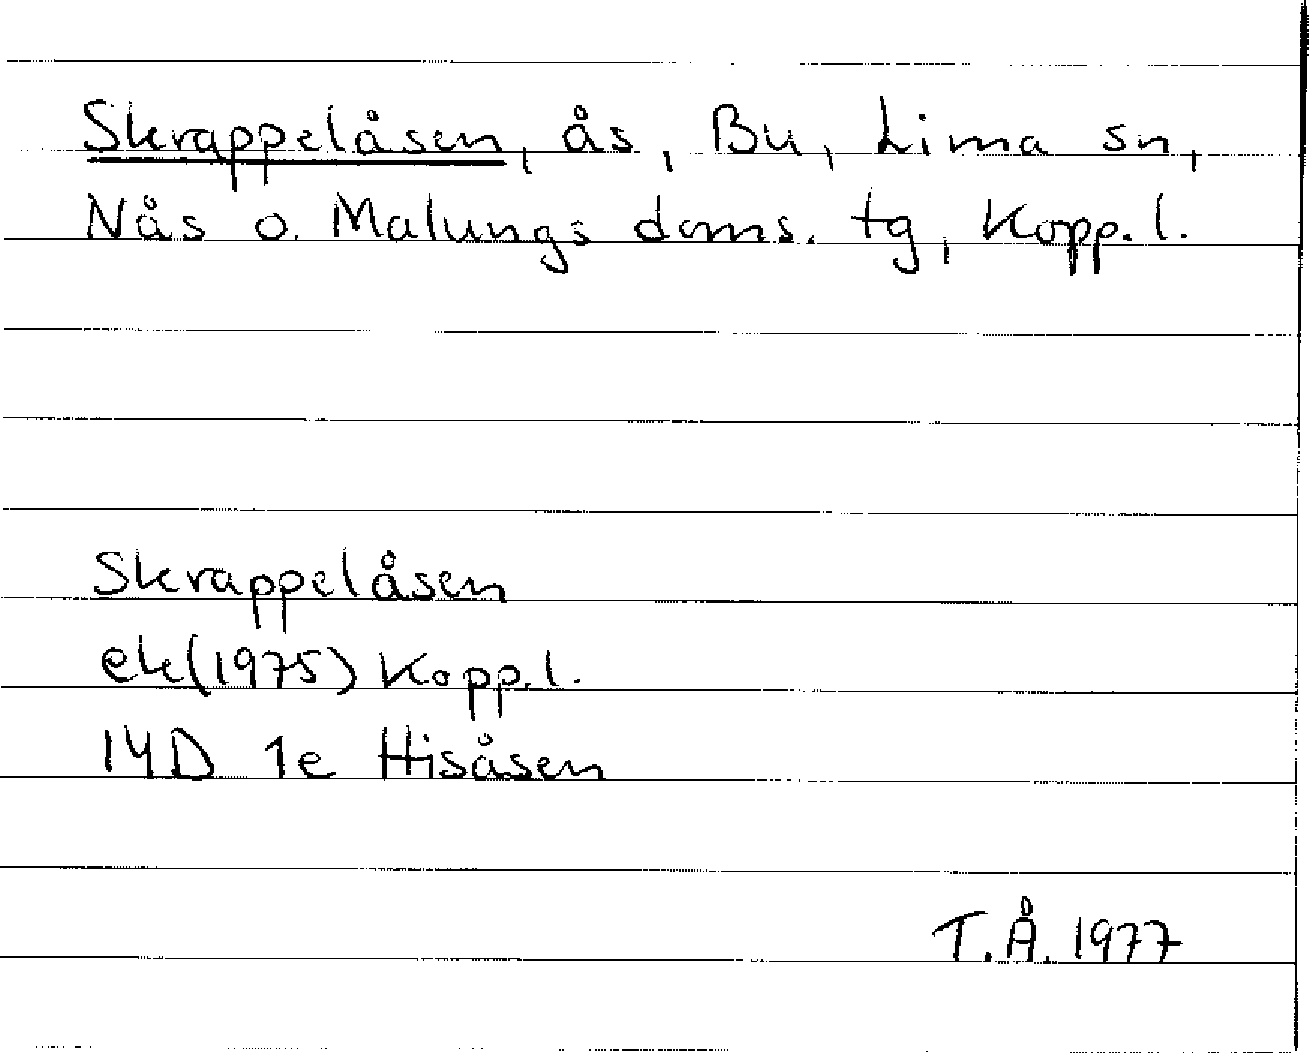 Skrappelåsen, ås, Bu, Lima sn,
Nås o. Malungs doms. tg, Kopp. l.
Skrappelåsen
ek (1975) Kopp. l.
14D 1e Hisåsen
T.Å. 1977